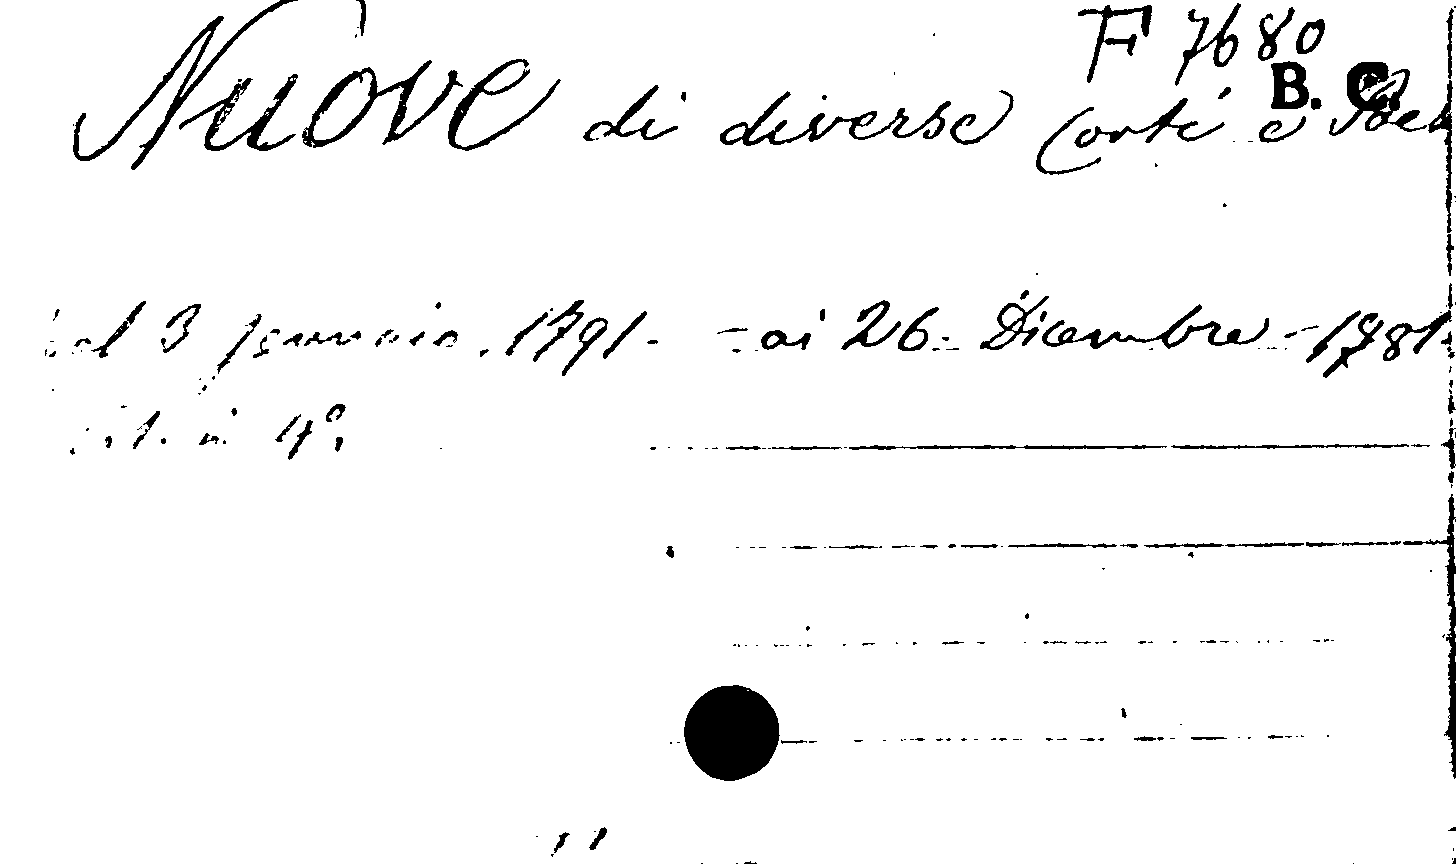 F 7680
B. C.
Nuove di diverse Corti e
3 Gennaio 1791. - ai 26. Dicembre - 1781
in 4°.